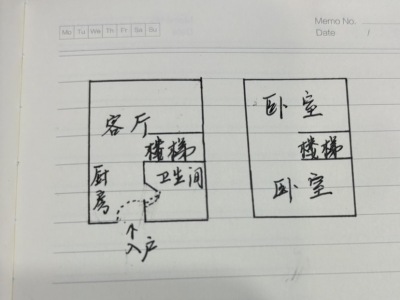 Memo No.
Mo Tu We Th Fr Sa Su
Date /
客厅
楼梯
厨房
卫生间
入户
卧室
楼梯
卧室